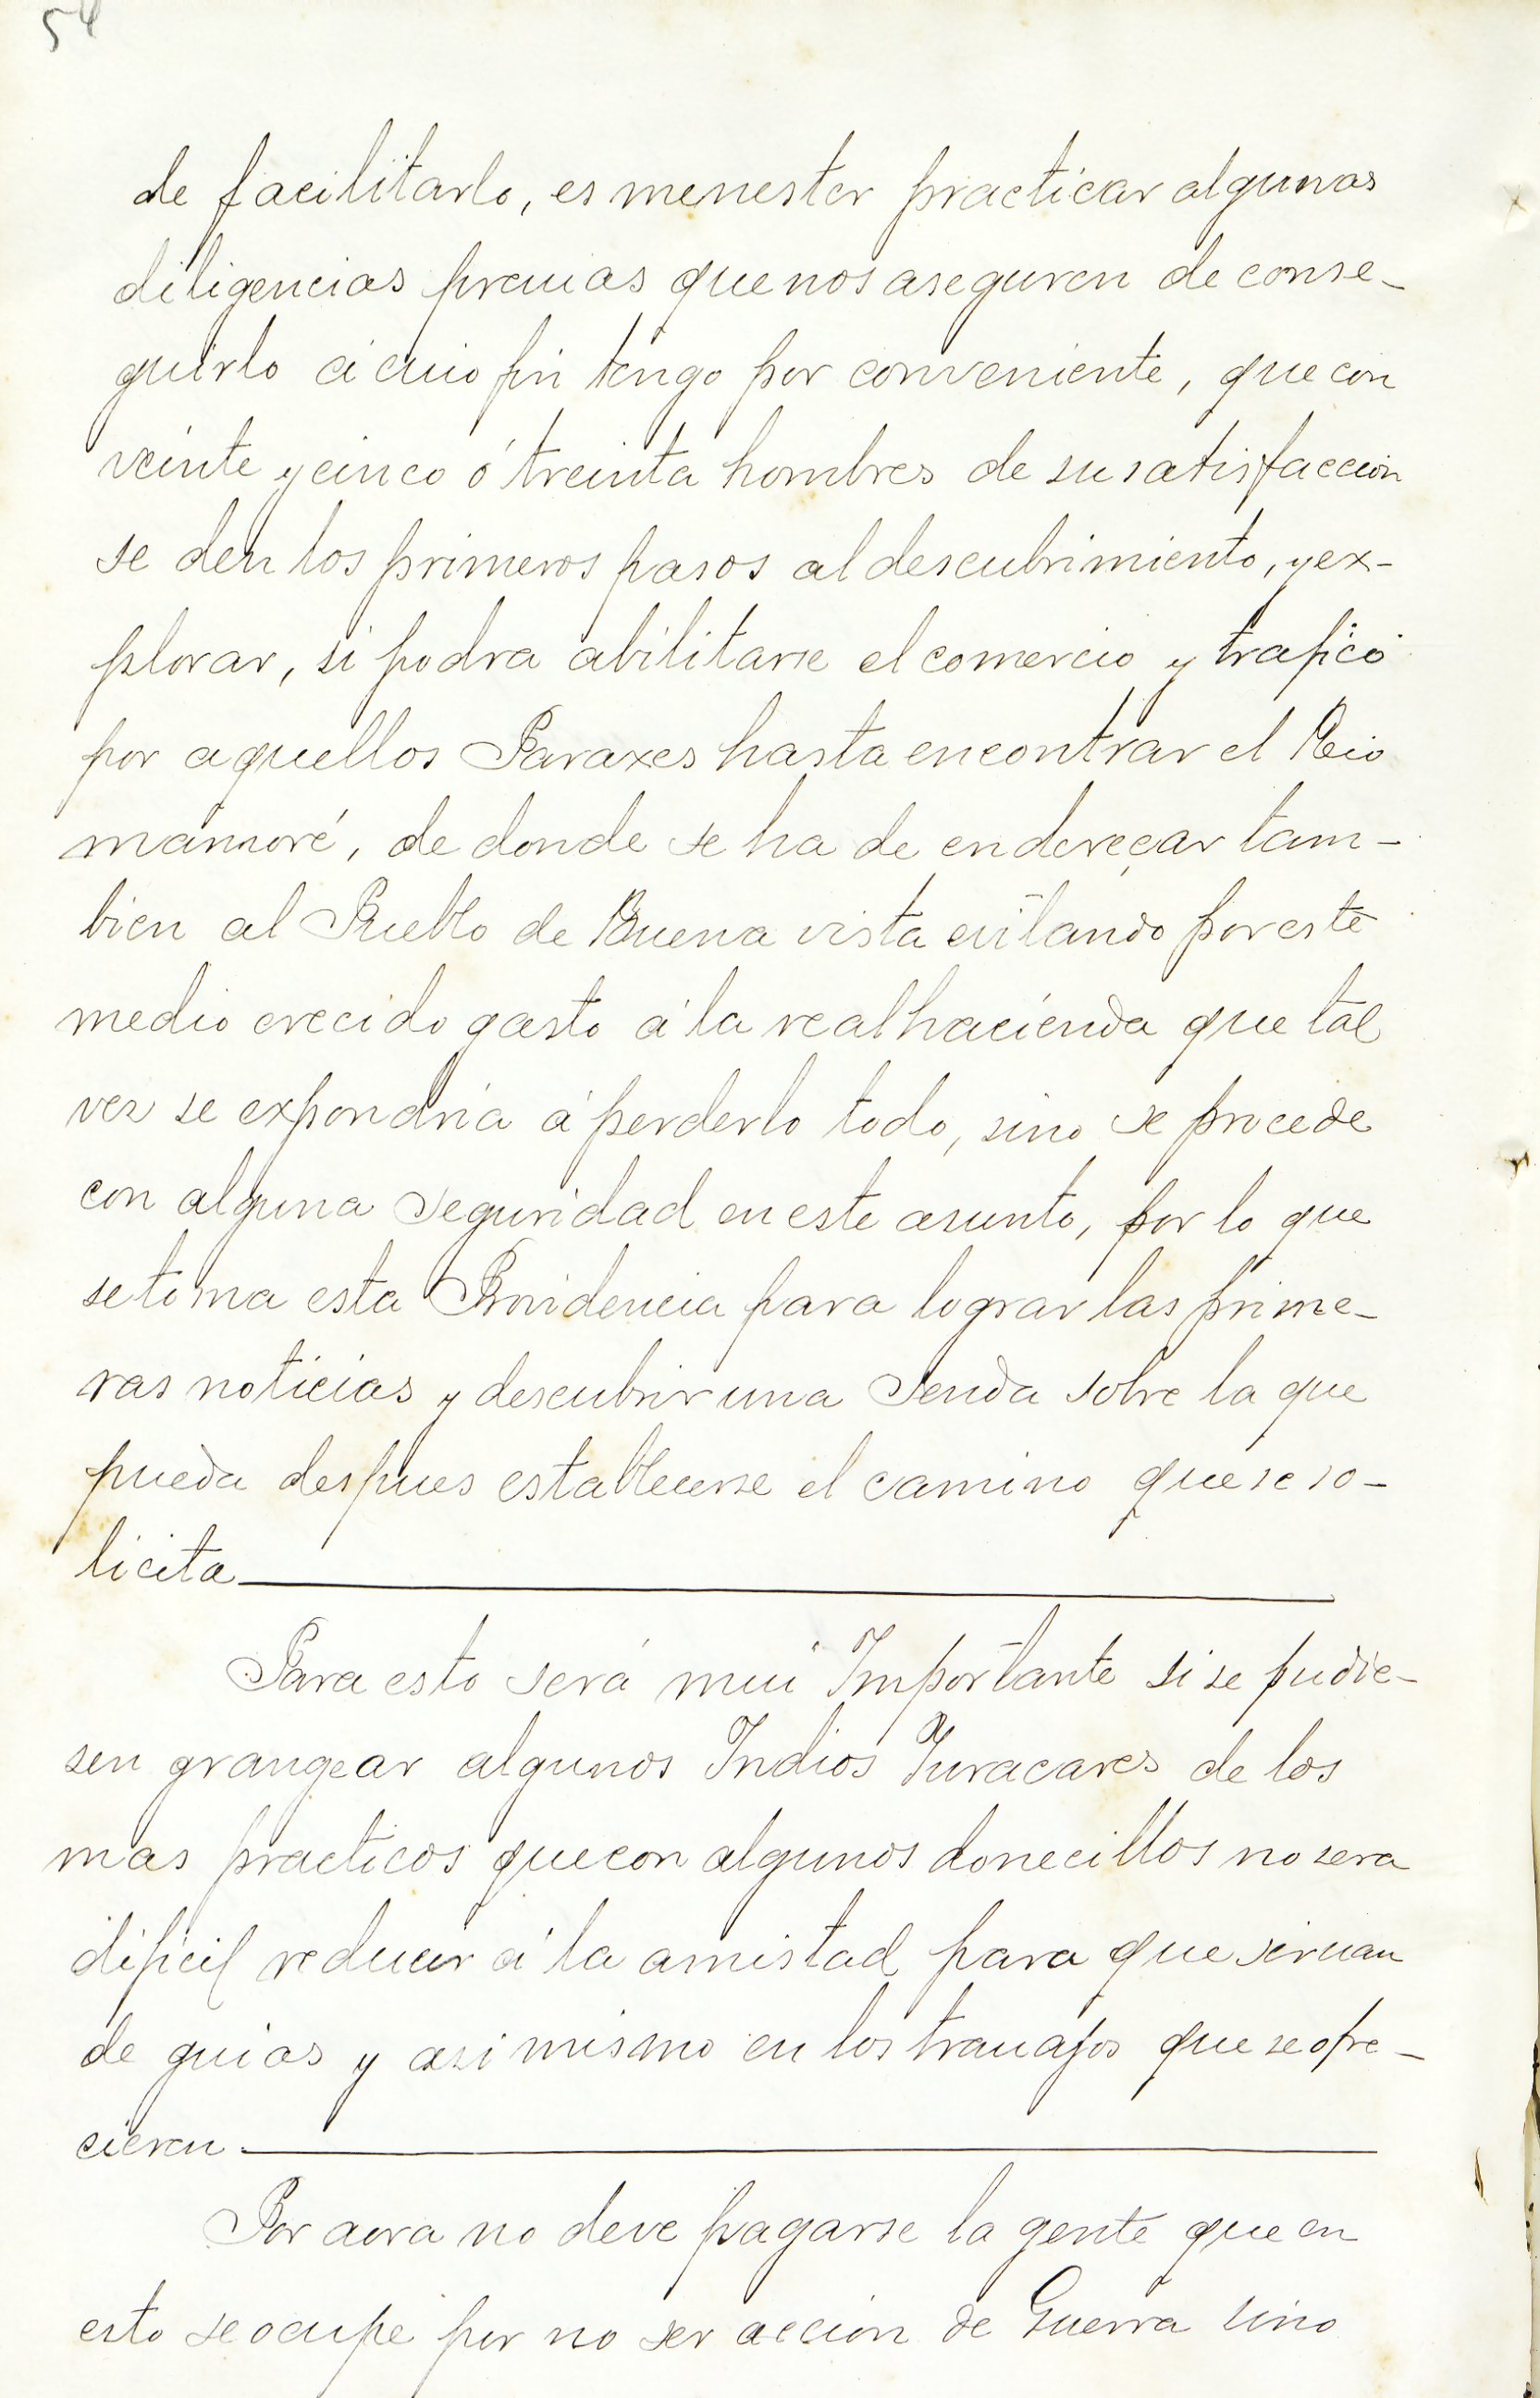 54
de facilitarlo, es menester practicar algunas
diligencias preuias que nos aseguren de conse-
guirlo á cuio fin tengo por conveniente, que con
veinte y cinco ó treinta hombres de su satisfaccion
se den los primeros pasos al descubrimiento, y ex-
plorar, si podra abilitarse el comercio y trafico
por aquellos Paraxes hasta encontrar el Rio
mamoré, de donde se ha de endereçar tam-
bien al Pueblo de Buena vista euitando por este
medio crecido gasto á la real hacienda que tal
vez se expondria á perderlo todo, sino se procede
con alguna seguridad en este asunto, por lo que
se toma esta Providencia para lograr las prime-
ras noticias y descubrir una senda sobre la que
pueda despues establecerse el camino que se so-
licita
Para esto será mui Importante si se pudie-
sen grangear algunos Indios Yuracares de los
mas practicos que con algunos donecillos no sera
dificil reducir á la amistad para que siruan
de guias y asi mismo en los trauajos que se ofre-
cieren
Por aora no deve pagarse la gente que en
esto se ocupe por no ser accion de Guerra sino